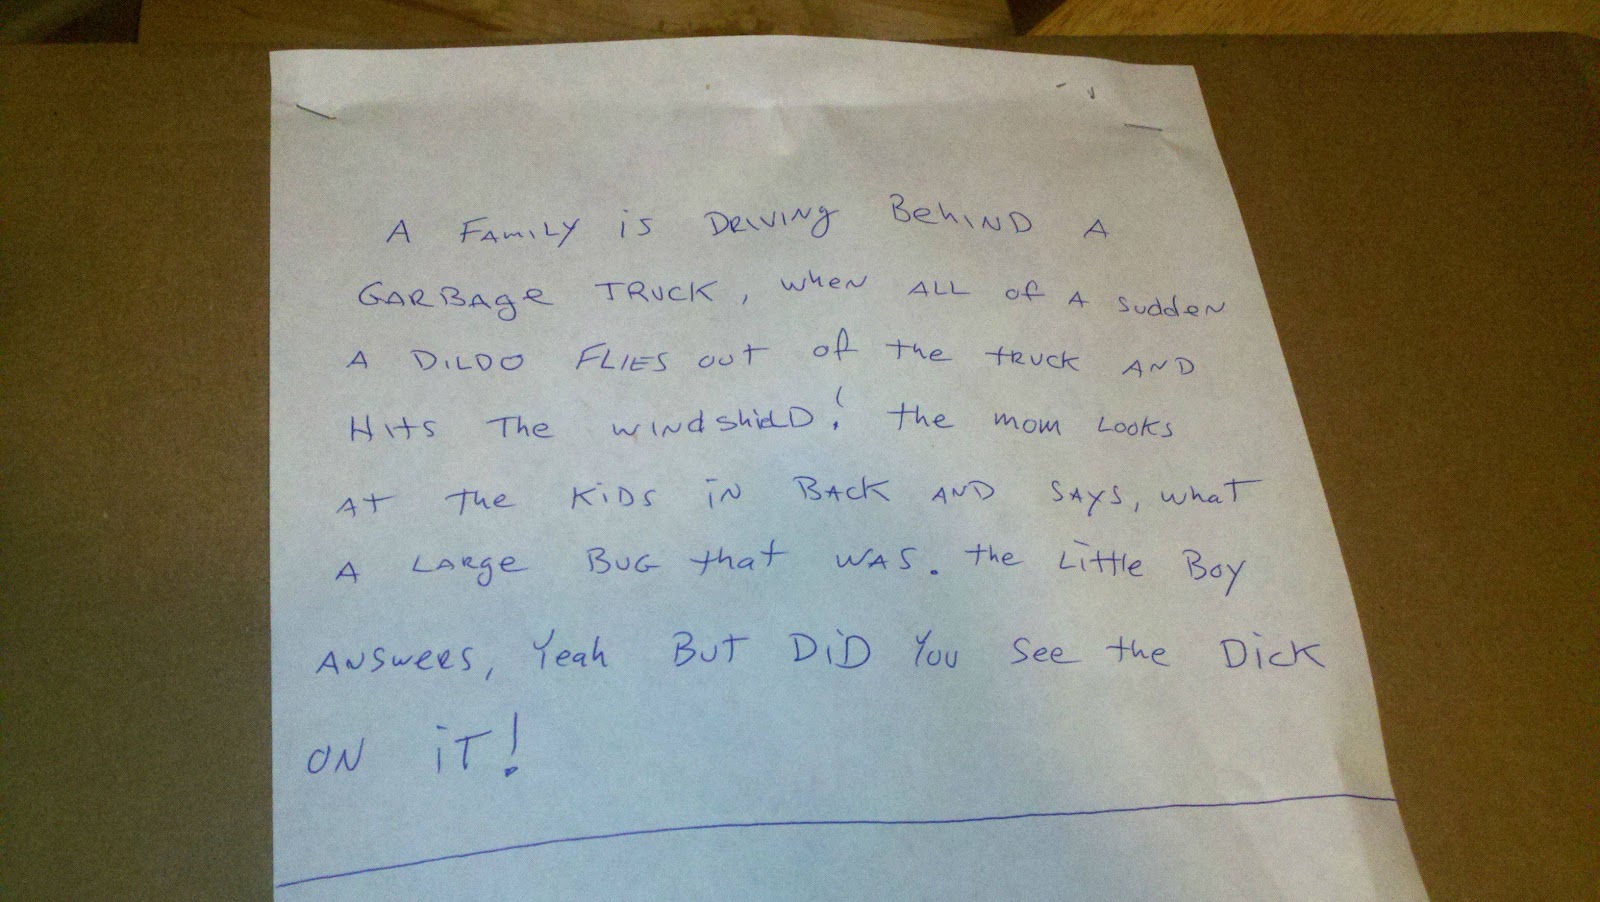 A FAMILY iS DRIVING BehIND A
GARBAge TRUCK, wheN ALL of A suddeN
A DILDO FLIES out of the tRUCK AND
HITS The wINdshielD! the mom LOOKS
AT The KiDS iN BACK AND SAYS, whaT
A LARge BUG that WAS. the Little Boy
ANSweRS, Yeah BuT DiD You See the DicK
ON iT!